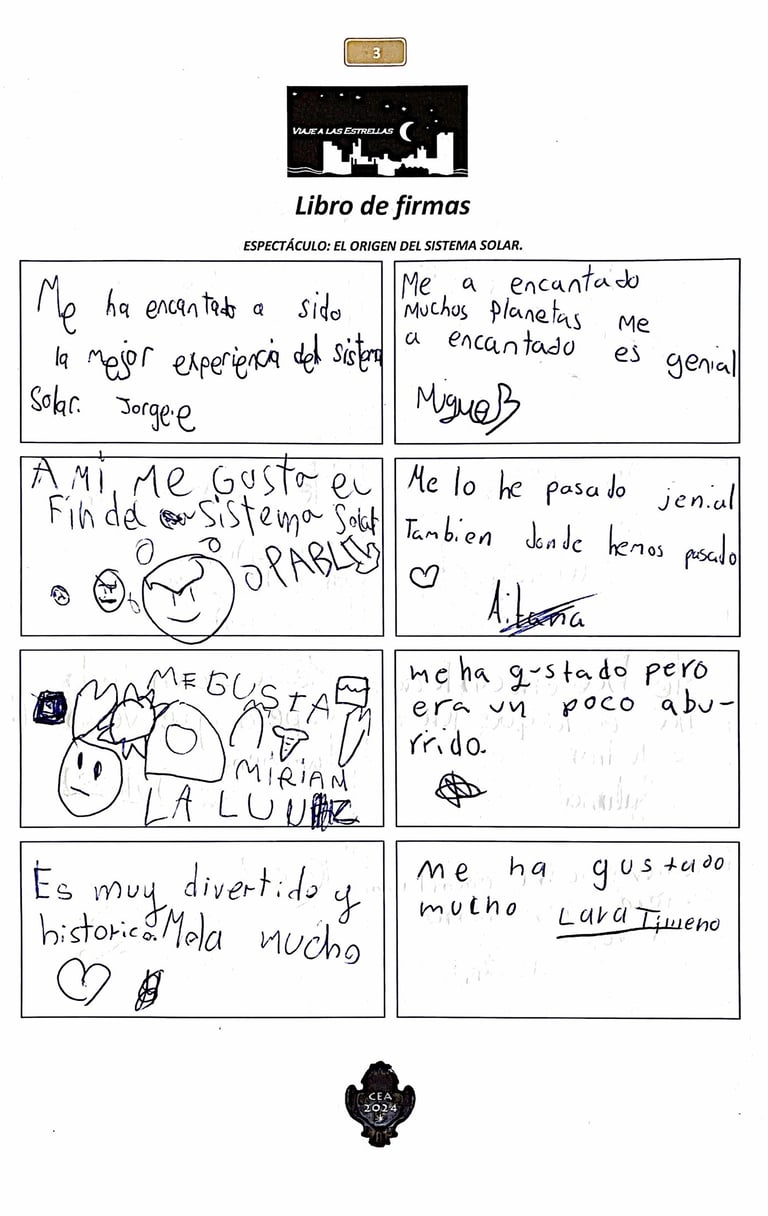 3
VIAJE A LAS ESTRELLAS
Libro de firmas
ESPECTÁCULO: EL ORIGEN DEL SISTEMA SOLAR.
Me ha encantado a sido
la mejor experiencia del sistema
Solar. Jorge.e
Me a encantado
Muchos Planetas Me
a encantado es genial
Miguel B
A Mí, Me GUSta el
Fin del sistema Solar
PABLO
Me lo he pasado jenial
Tambien donde hemos pasado
Aitana
ME GUSTA
MiRiAM
LA LU
me ha gustado pero
era un poco abu-
rrido.
Es muy divertido y
historico. Mola mucho
Me ha gustado
mucho Lara Timeno
CEA
2024